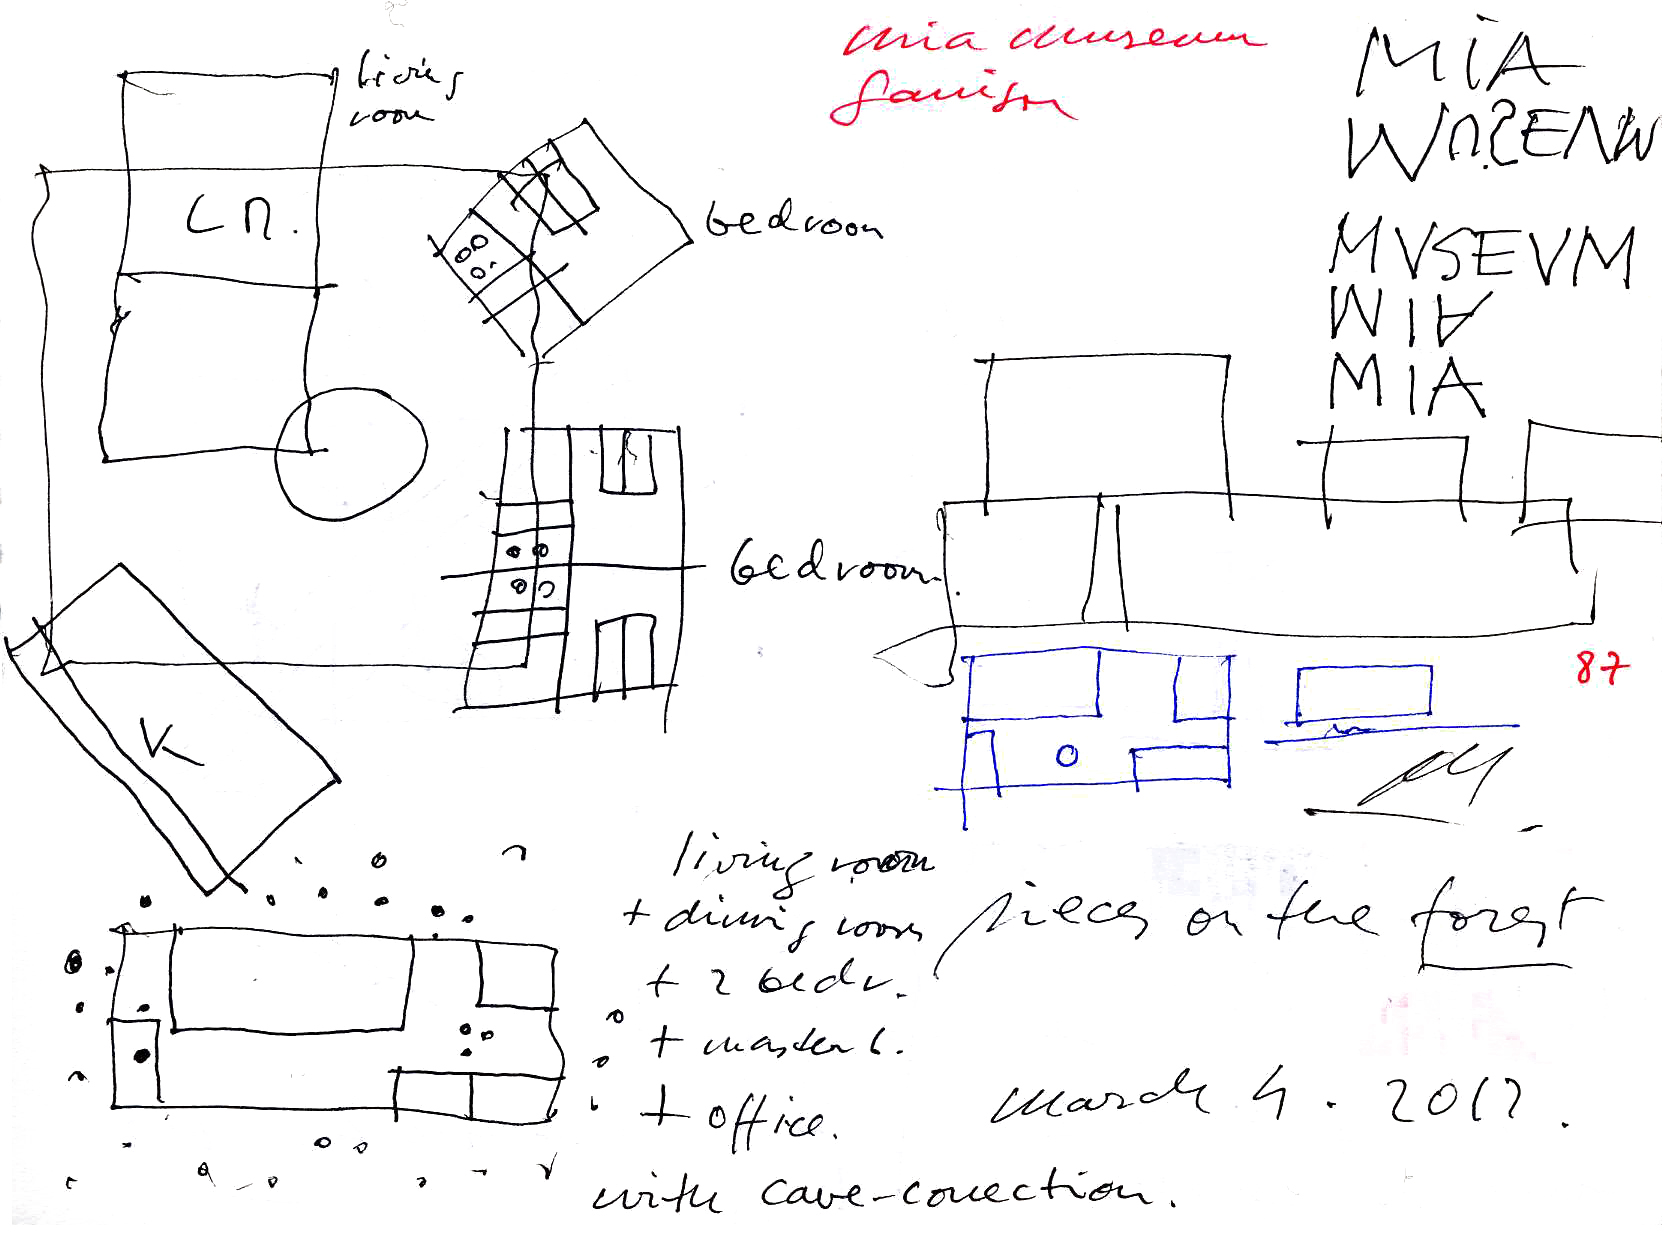 mia museum
Garrison
living
room
MIA
MUSEUM
L R.
bedroom
MUSEUM
MIA
MIA
bedroom.
87
K
living room
+ dining room
+ 2 bedr.
+ master b.
+ office.
with cave-conection.
pieces on the forest
march 4. 2012.